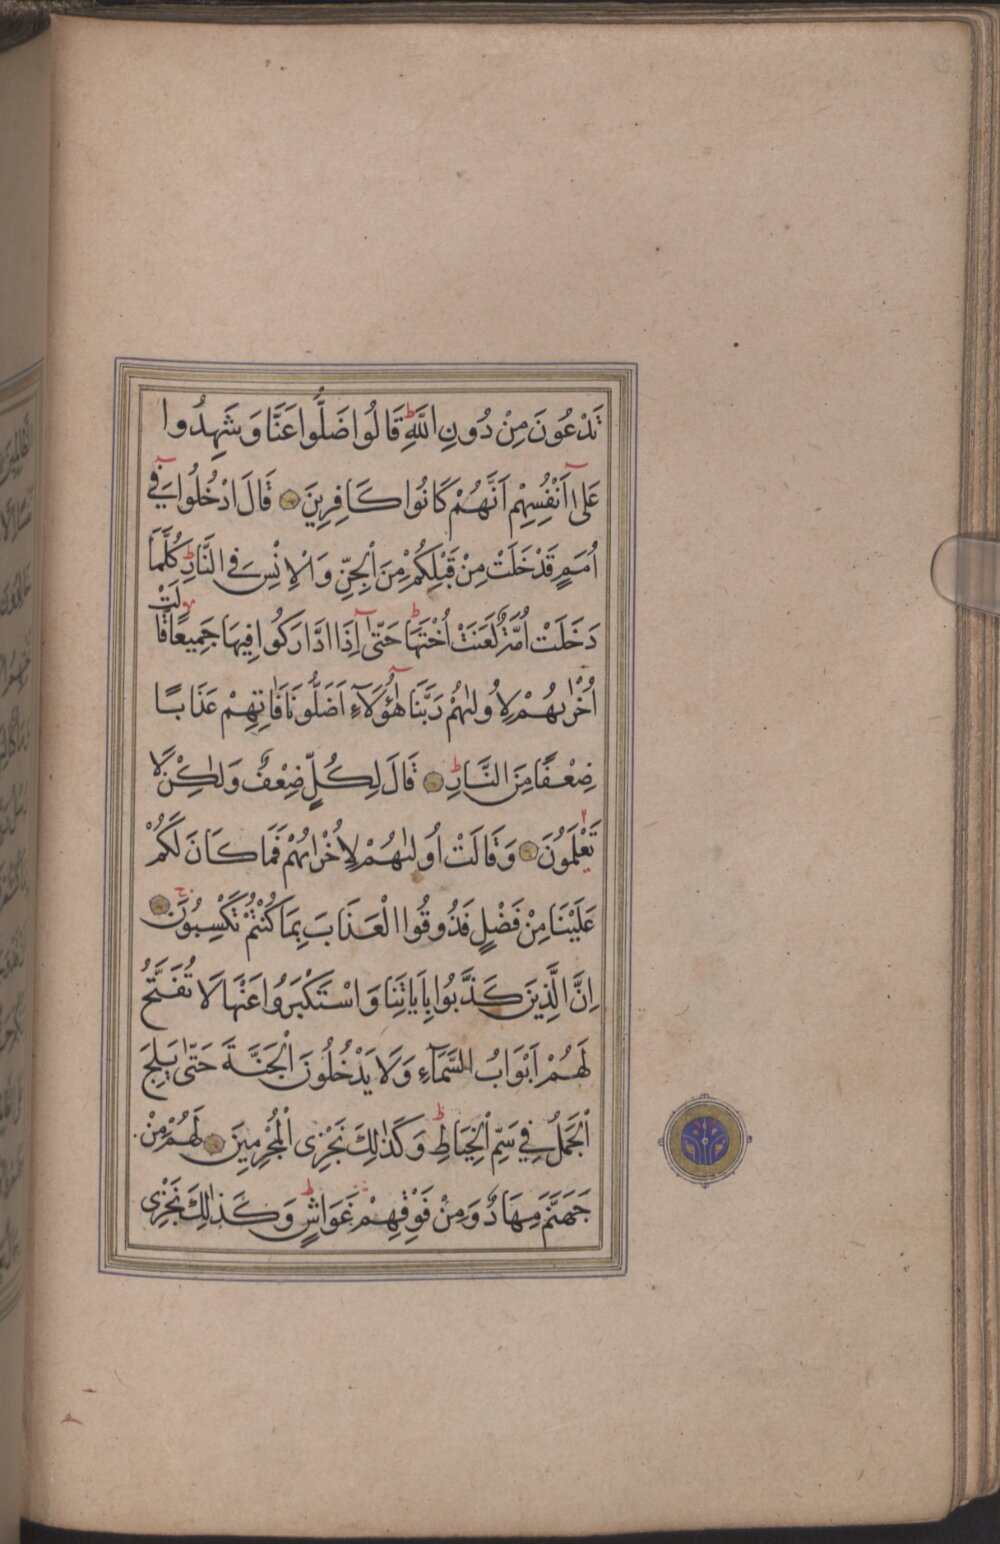 تَدْعُونَ مِنْ دُونِ اللَّهِ قَالُوا ضَلُّوا عَنَّا وَشَهِدُوا
عَلٰى اَنْفُسِهِمْ اَنَّهُمْ كَانُوا كَافِرِينَ قَالَ ادْخُلُوا فِى
اُمَمٍ قَدْ خَلَتْ مِنْ قَبْلِكُمْ مِنَ الْجِنِّ وَالْاِنْسِ فِى النَّارِ كُلَّمَا
دَخَلَتْ اُمَّةٌ لَعَنَتْ اُخْتَهَا حَتّٰى اِذَا ادَّارَكُوا فِيهَا جَمِيعًا قَالَتْ
اُخْرٰيهُمْ لِاُولٰيهُمْ رَبَّنَا هٰؤُلَاءِ اَضَلُّونَا فَاٰتِهِمْ عَذَابًا
ضِعْفًا مِنَ النَّارِ قَالَ لِكُلٍّ ضِعْفٌ وَلٰكِنْ لَا
تَعْلَمُونَ وَقَالَتْ اُولٰيهُمْ لِاُخْرٰيهُمْ فَمَا كَانَ لَكُمْ
عَلَيْنَا مِنْ فَضْلٍ فَذُوقُوا الْعَذَابَ بِمَا كُنْتُمْ تَكْسِبُونَ
اِنَّ الَّذِينَ كَذَّبُوا بِاٰيَاتِنَا وَاسْتَكْبَرُوا عَنْهَا لَا تُفَتَّحُ
لَهُمْ اَبْوَابُ السَّمَاءِ وَلَا يَدْخُلُونَ الْجَنَّةَ حَتّٰى يَلِجَ
الْجَمَلُ فِى سَمِّ الْخِيَاطِ وَكَذٰلِكَ نَجْزِى الْمُجْرِمِينَ لَهُمْ مِنْ
جَهَنَّمَ مِهَادٌ وَمِنْ فَوْقِهِمْ غَوَاشٍ وَكَذٰلِكَ نَجْزِى